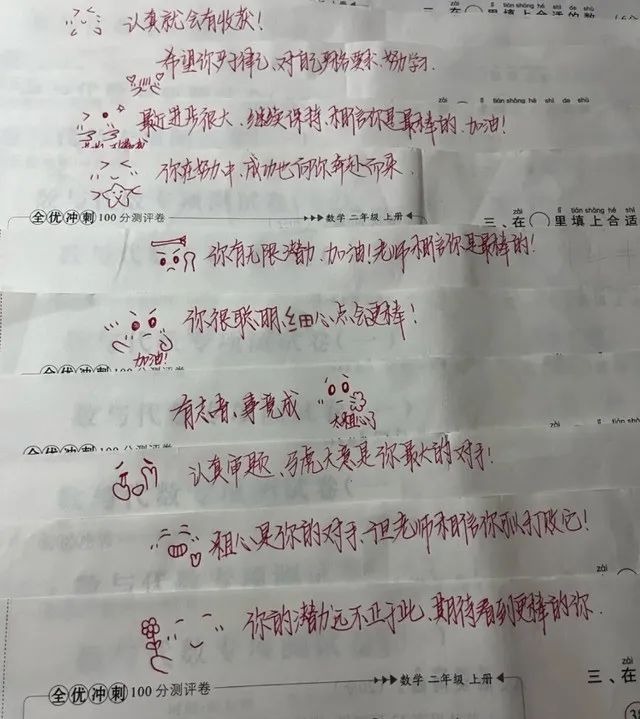 里填上合适的数
认真就会有收获!
希望你
对自己
要求,努力学习.
zài tián shàng hé shì de shù
最近进步很大、继续保持,相信你是最棒的,加油!
你在努力中,成功也向你奔赴而来.
全优冲刺100分测评卷 数学 二年级 上册
zài lǐ tián shàng hé shì
三、在 里填上合适
你有无限潜力、加油!老师相信你是最棒的!
你很聪明,细心点会更棒!
加油!
有志者、事竟成
太粗心了
全优冲刺100分测评卷
认真审题、马虎大意是你最大的对手!
粗心是你的对手、但老师相信你可以打败它!
zài
你的潜力远不止于此、期待看到更棒的你.
zài
三、在
全优冲刺100分测评卷 数学 二年级 上册